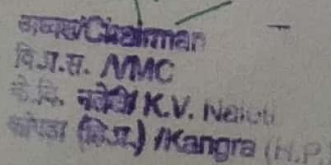 अध्यक्ष/Chairman
वि.प्र.स. /VMC
के.वि. नलेटी/ K.V. Naleti
कांगड़ा (हि.प्र.) /Kangra (H.P